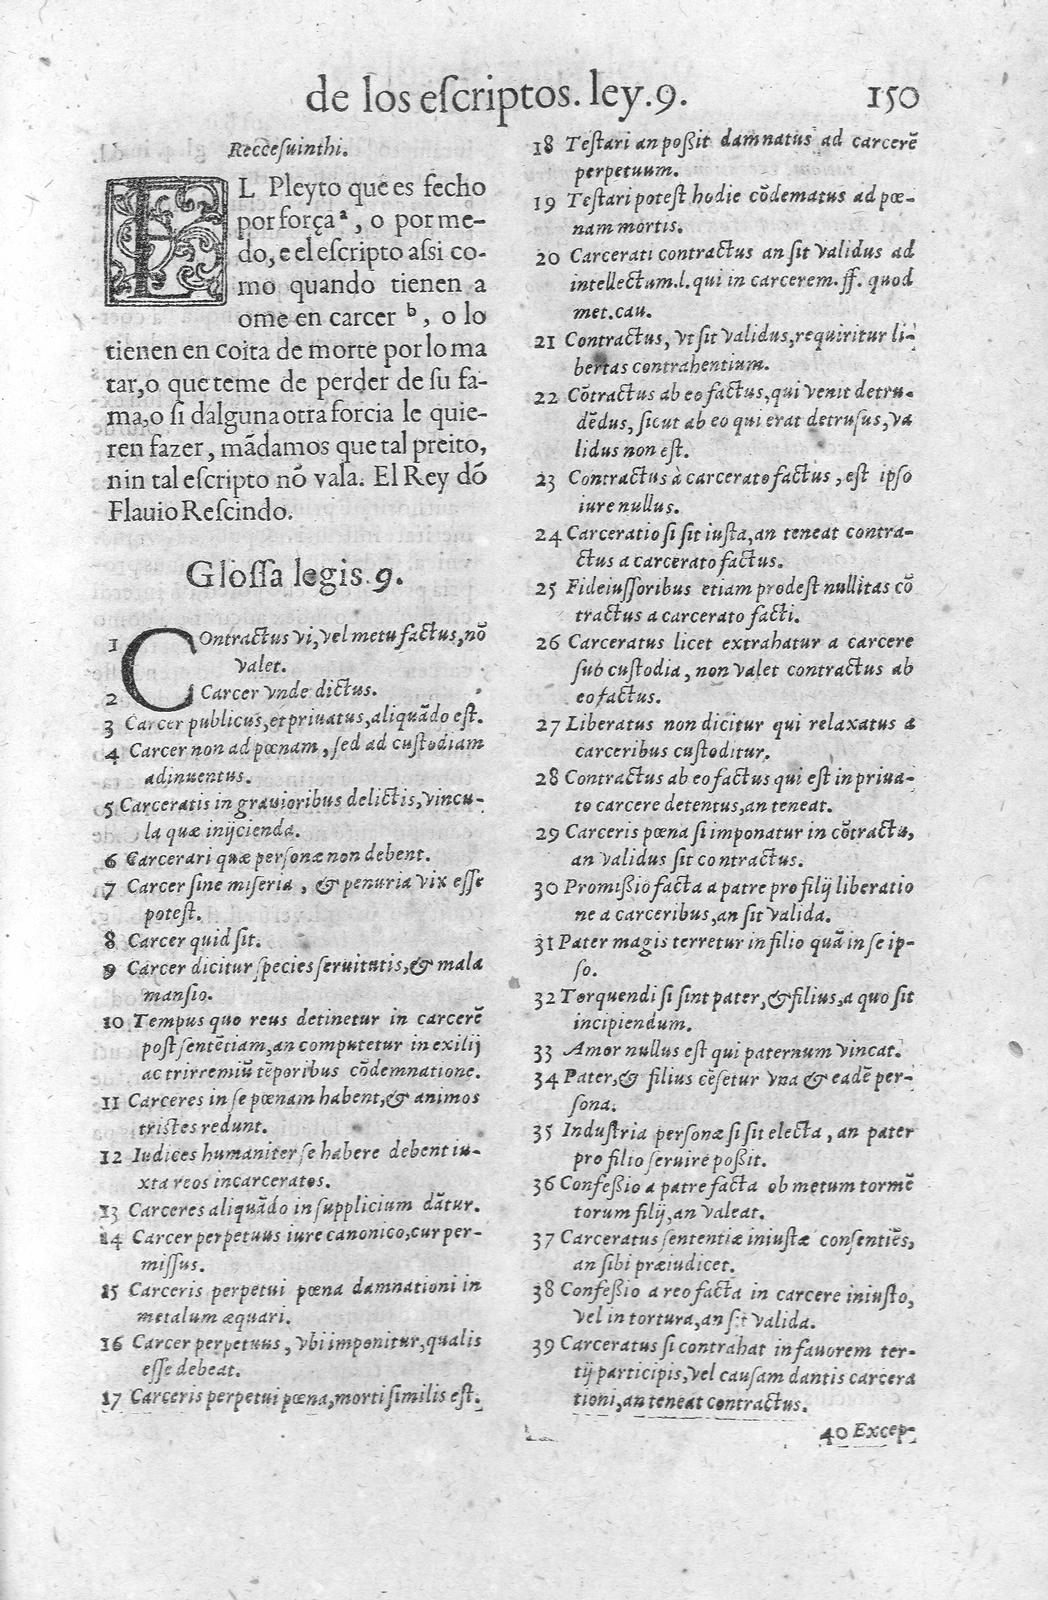 de los eſcriptos. ley. 9. 150
Reccesuinthi.
EL Pleyto que es fecho
por força ª, o por me-
do, e el eſcripto aſsi co-
mo quando tienen a
ome en carcer ᵇ, o lo
tienen en coita de morte por lo ma
tar, o que teme de perder de ſu fa-
ma, o ſi dalguna otra forcia le quie-
ren fazer, mãdamos que tal preito,
nin tal eſcripto nõ vala. El Rey dõ
Flauio Reſcindo.
Gloſſa legis. 9.
1 COntractus vi, vel metu factus, nõ
valet.
2 Carcer vnde dictus.
3 Carcer publicus, et priuatus, aliquãdo eſt.
4 Carcer non ad pœnam, ſed ad cuſtodiam
adinuentus.
5 Carceratis in grauioribus delictis, vincu-
la quæ inijcienda.
6 Carcerari quæ perſonæ non debent.
7 Carcer ſine miſeria, & penuria vix eſſe
poteſt.
8 Carcer quid ſit.
9 Carcer dicitur ſpecies ſeruitutis, & mala
manſio.
10 Tempus quo reus detinetur in carcerẽ
poſt ſentẽtiam, an computetur in exilij
ac trirremiũ tẽporibus cõdemnatione.
11 Carceres in ſe pœnam habent, & animos
triſtes redunt.
12 Iudices humaniter ſe habere debent iu-
xta reos incarceratos.
13 Carceres aliquãdo in ſupplicium dãtur.
14 Carcer perpetuus iure canonico, cur per-
miſſus.
15 Carceris perpetui pœna damnationi in
metalum æquari.
16 Carcer perpetuus, vbi imponitur, qualis
eſſe debeat.
17 Carceris perpetui pœna, morti ſimilis eſt.
18 Teſtari an poßit damnatus ad carcerẽ
perpetuum.
19 Teſtari poteſt hodie cõdematus ad pœ-
nam mortis.
20 Carcerati contractus an ſit validus ad
intellectum. l. qui in carcerem. ff. quod
met. cau.
21 Contractus, vt ſit validus, requiritur li-
bertas contrahentium.
22 Cõtractus ab eo factus, qui venit detru-
dẽdus, ſicut ab eo qui erat detruſus, va
lidus non eſt.
23 Contractus à carcerato factus, eſt ipſo
iure nullus.
24 Carceratio ſi ſit iuſta, an teneat contra-
ctus a carcerato factus.
25 Fideiuſſoribus etiam prodeſt nullitas cõ
tractus a carcerato facti.
26 Carceratus licet extrahatur a carcere
ſub cuſtodia, non valet contractus ab
eo factus.
27 Liberatus non dicitur qui relaxatus a
carceribus cuſtoditur.
28 Contractus ab eo factus qui eſt in priua-
to carcere detentus, an teneat.
29 Carceris pœna ſi imponatur in cõtractu,
an validus ſit contractus.
30 Promißio facta a patre pro filij liberatio
ne a carceribus, an ſit valida.
31 Pater magis terretur in filio quã in ſe ip-
ſo.
32 Torquendi ſi ſint pater, & filius, a quo ſit
incipiendum.
33 Amor nullus eſt qui paternum vincat.
34 Pater, & filius cẽſetur vna & eadẽ per-
ſona.
35 Induſtria perſonæ ſi ſit electa, an pater
pro filio ſeruire poßit.
36 Confeßio a patre facta ob metum tormẽ
torum filij, an valeat.
37 Carceratus ſententiæ iniuſtæ conſentiẽs,
an ſibi præiudicet.
38 Confeßio a reo facta in carcere iniuſto,
vel in tortura, an ſit valida.
39 Carceratus ſi contrahat in fauorem ter-
tij participis, vel cauſam dantis carcera
tioni, an teneat contractus.
40 Excep-